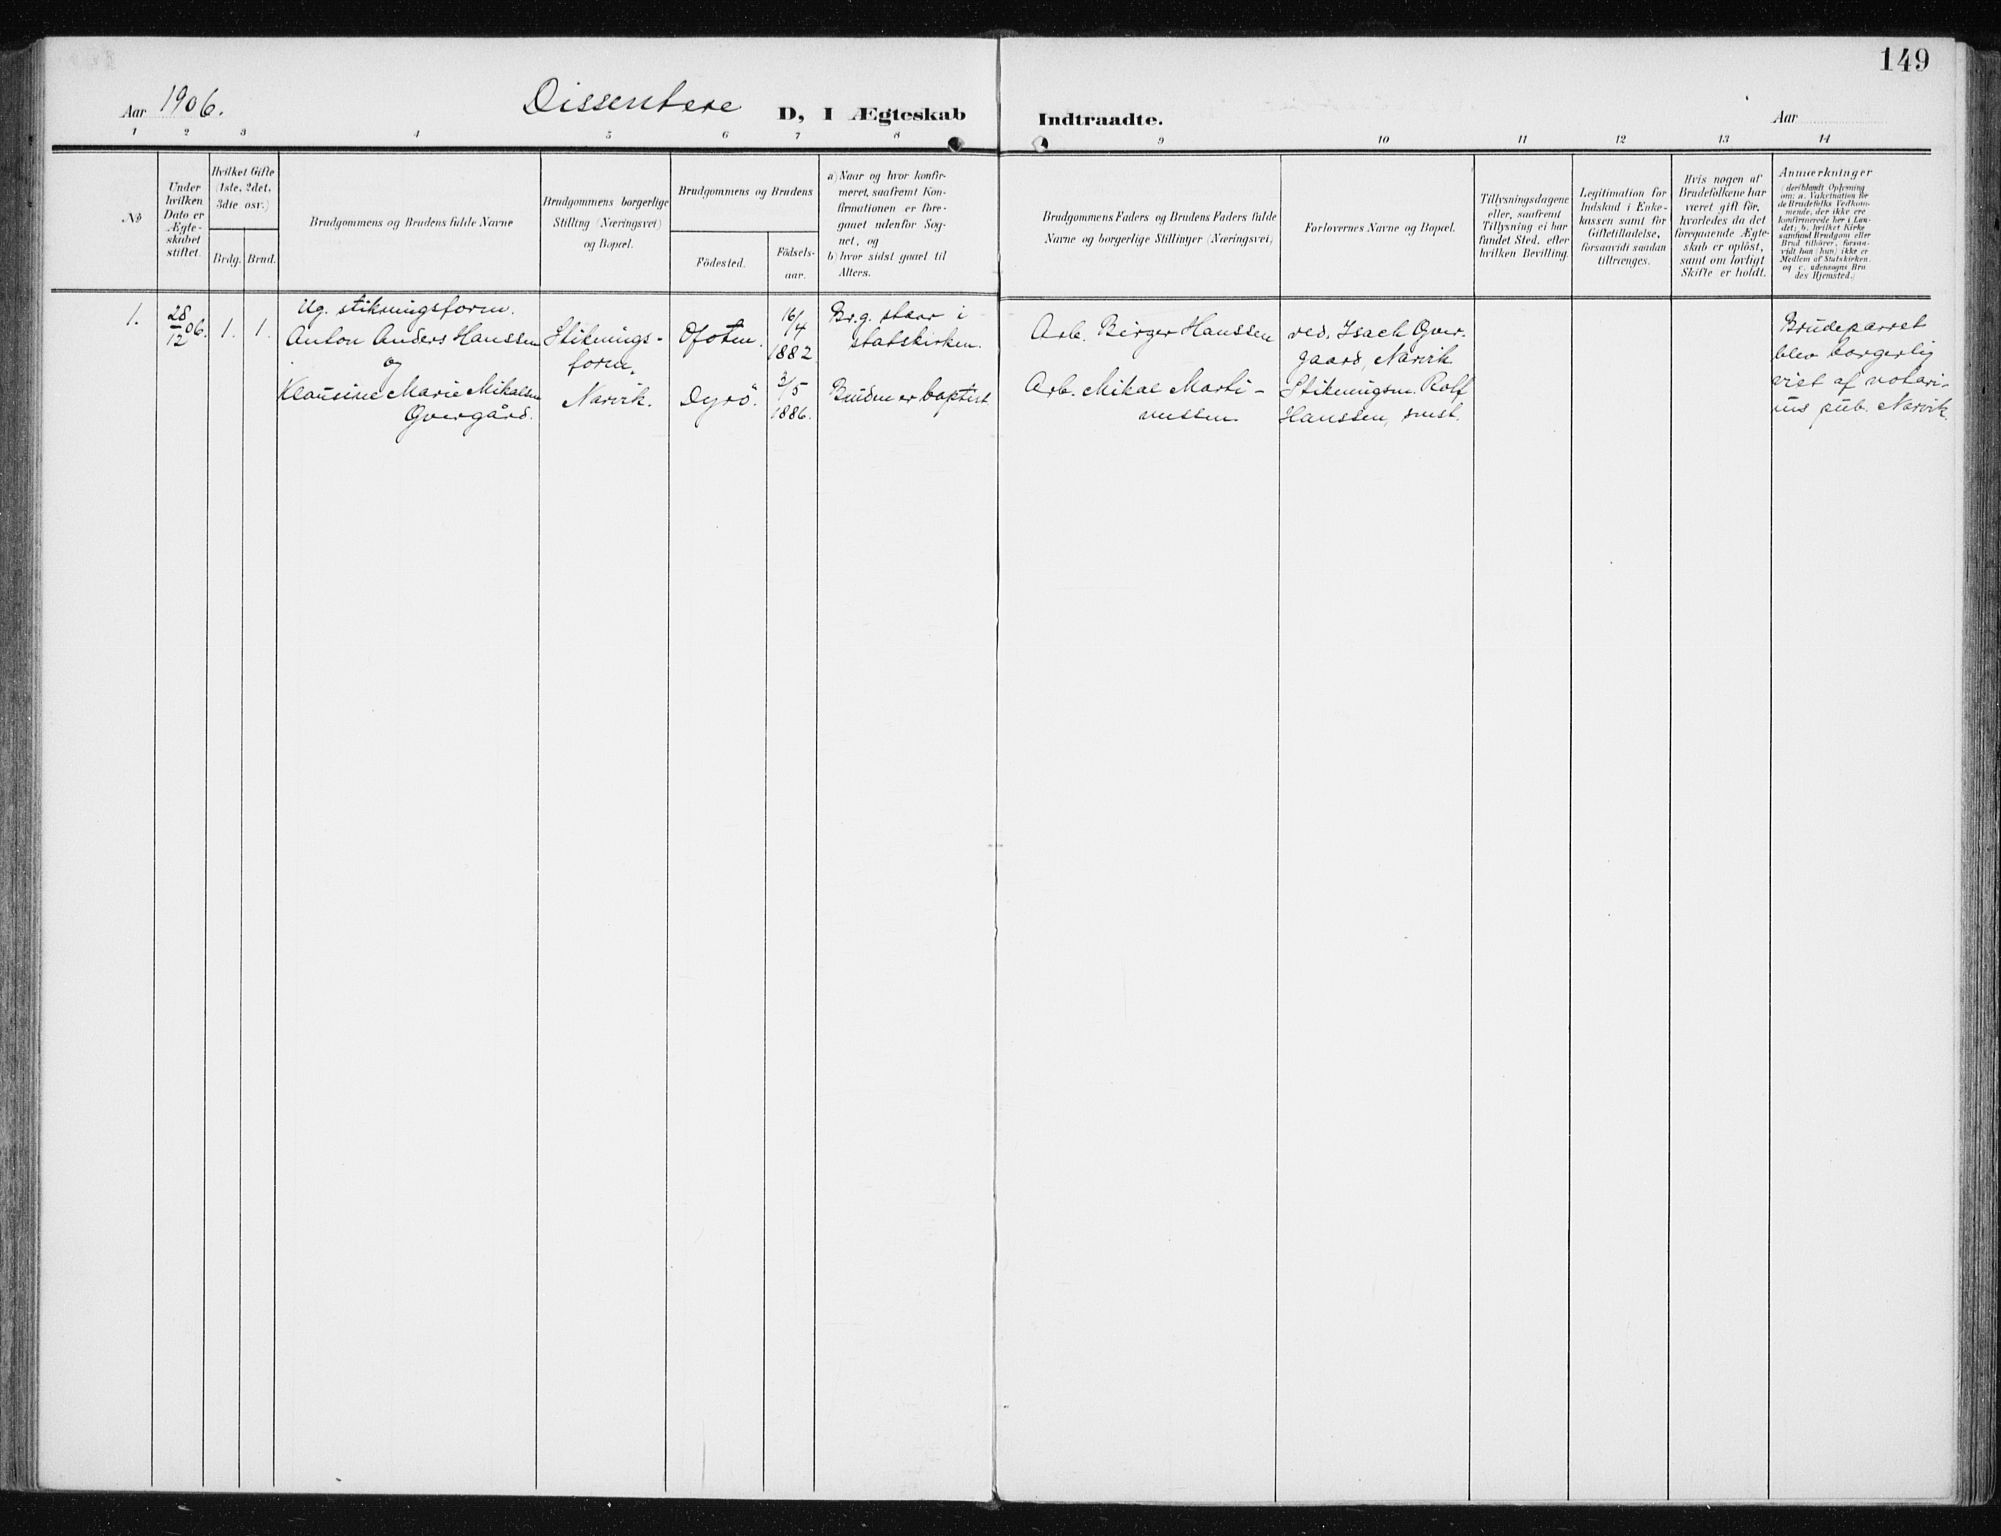 149
Aar 1906.
Dissentere
D, I Ægteskab
Indtraadte.
Aar
1 2 3 4 5 6 7 8 9 10 11 12 13 14
No
Under
hvilken
Dato er
Ægte-
skabet
stiftet.
Hvilket Gifte
(1ste, 2det,
3die osv.)
Brdg. Brud.
Brudgommens og Brudens fulde Navne
Brudgommens borgerlige
Stilling (Næringsvei)
og Bopæl.
Brudgommens og Brudens
Födested.
Födsels-
aar.
a) Naar og hvor konfir-
meret, saafremt Kon-
firmationen er fore-
gaaet udenfor Sog-
net, og
b) hvor sidst gaaet til
Alters.
Brudgommens Faders og Brudens Faders fulde
Navne og borgerlige Stillinger (Næringsvei)
Forlovernes Navne og Bopæl.
Tillysningsdagene
eller, saafremt
Tillysning ei har
fundet Sted, efter
hvilken Bevilling.
Legitimation for
Indskud i Enke-
kassen samt for
Giftetilladelse,
forsaavidt saadan
tiltrænges.
Hvis nogen af
Brudefolkene har
været gift för,
hvorledes da det
foregaaende Ægte-
skab er oplöst,
samt om lovligt
Skifte er holdt.
Anmærkninger
(deriblandt Oplysning
om: a. Vakcination for
de Brudefolks Vedkom-
mende, der ikke ere
konfirmerede her i Lan-
det; b. hvilket Kirke
samfund Brudgom eller
Brud tilhörer, forsaa-
vidt han (hun) ikke er
Medlem af Statskirken.
og c. udensogns Bru
des Hjemsted.)
1.
28/12 06.
1. 1.
Ug. stikningsform.
Anton Anders Hanssen
og
Klausine Marie Mikalsen
Gvergård.
Stiknings-
form,
Narvik.
Ofoten.
Dyrö.
16/4
1882
3/5
1886.
Br.g. staar i
statskirken.
Bruden er baptist.
Arb. Birger Hanssen
Arb. Mikal Marti-
nussen
ved. Isach Gver-
gaard, Narvik
Stikningsm. Rolf
Hanssen, smst.
Brudeparret
blev borgerlig
viet af notari-
us pub. Narvik.